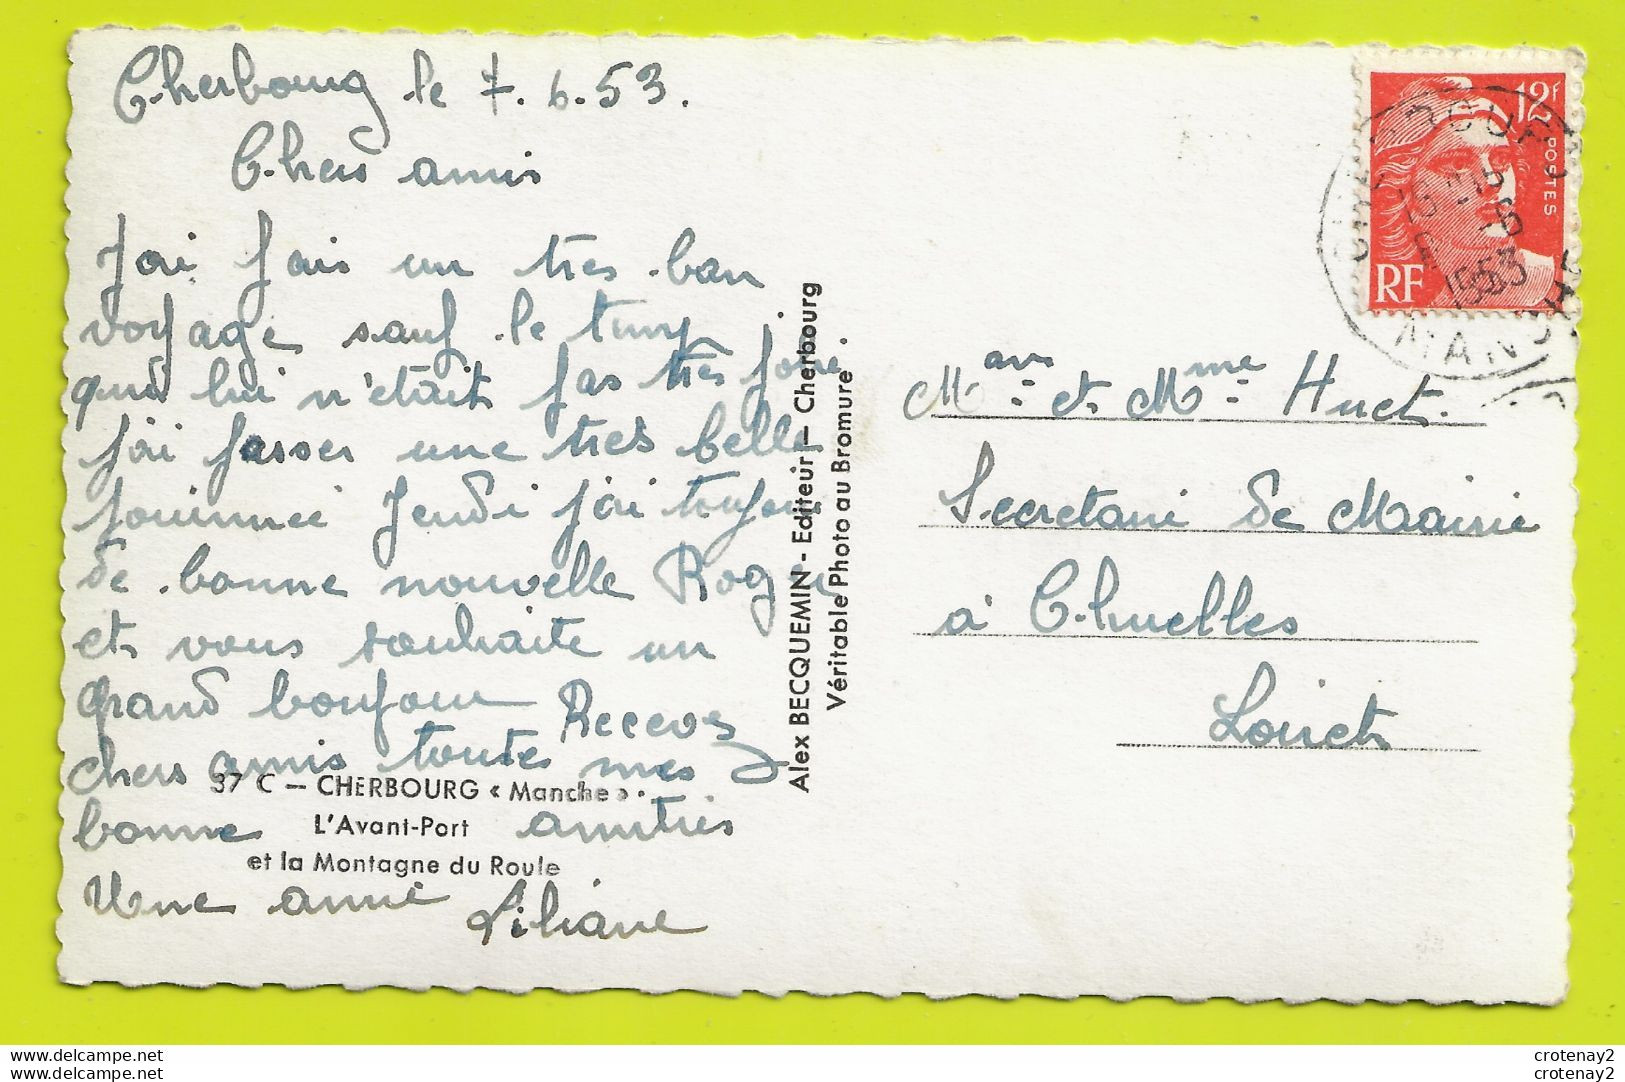 Cherbourg le 7.6.53.
Chers amis
J'ai fais un tres bon
voyage sauf le temp
qui lui n'était pas très jolie
j'ai passer une très belle
journnée Jeudi j'ai toujours
de bonne nouvelle Roger
et vous souhaite un
grand bonjour Recevez
chers amis toutes mes
bonne amitiés
Une amie Liliane
37 C — CHERBOURG « Manche » .
L'Avant-Port
et la Montagne du Roule
Alex BECQUEMIN - Editeur — Cherbourg
Véritable Photo au Bromure .
12F
POSTES
RF
1953
MANCHE
et Mme Huet.
Secretaire de Mairie
à Chuelles
Loiret
www.delcampe.net
www.delcampe.net
crotenay2
crotenay2